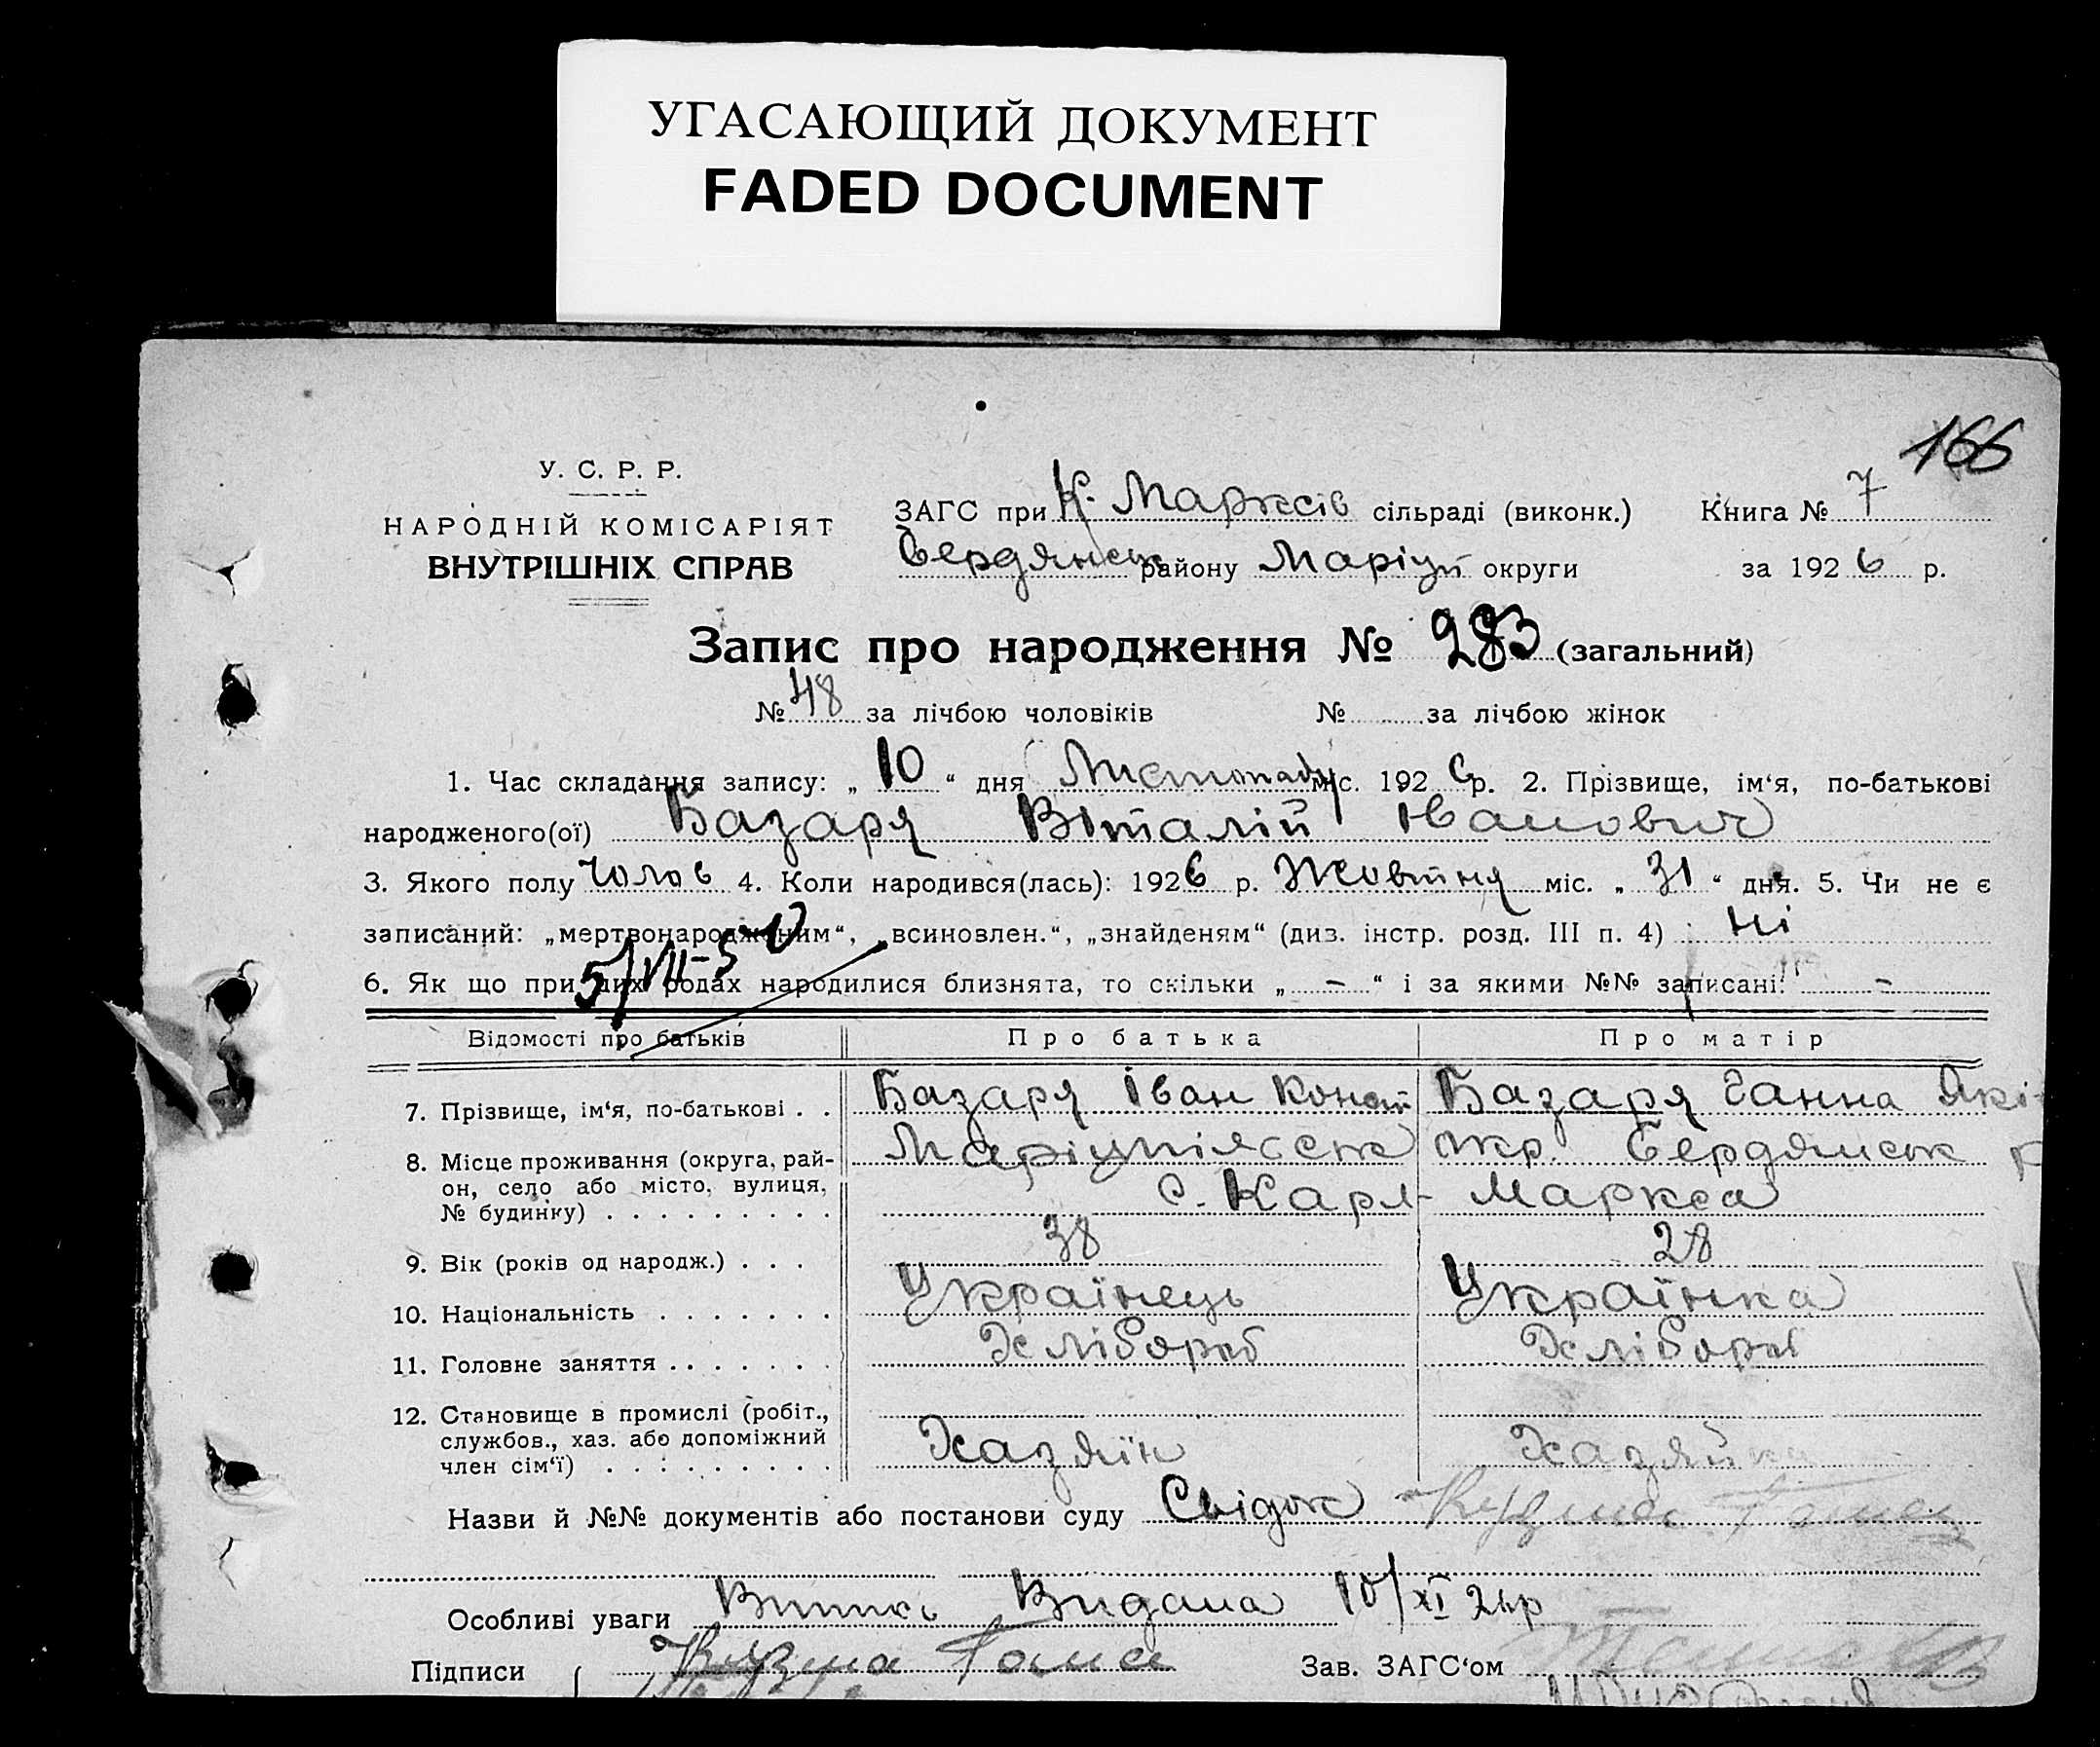 УГАСАЮЩИЙ ДОКУМЕНТ
FADED DOCUMENT
166
У. С. Р. Р.
НАРОДНІЙ КОМІСАРІЯТ
ВНУТРІШНІХ СПРАВ
ЗАГС при К. Марксів сільраді (виконк.) Книга № 7
Бердянськ району Маріуп округи за 1926 р.
Запис про народження № 283 (загальний)
№ 48 за лічбою чоловіків № за лічбою жінок
1. Час складання запису: „ 10 “ дня Листопаду міс. 192 6 р. 2. Прізвище, ім‘я, по-батькові
народженого(ої) Базаря Віталій Іванович
3. Якого полу Чолов 4. Коли народився(лась): 1926 р. Жовтня міс. „ 31 “ дня. 5. Чи не є
записаний: „мертвонародженим“, „всиновлен.“, „знайденям“ (диз. інстр. розд. III п. 4) Ні
5/VII-50
6. Як що при цих родах народилися близнята, то скільки „ – “ і за якими №№ записані: –
Відомості про батьків Про батька Про матір
7. Прізвище, ім‘я, по-батькові . . Базаря Іван Конст Базаря Ганна Які
8. Місце проживання (округа, рай- Маріупільськ окр. Бердянськ р
он, село або місто, вулиця, с. Карл- Маркса
№ будинку) . . . . . . . . .
9. Вік (років од народж.) . . . 38 28
10. Національність . . . . . . . Українець Українка
11. Головне заняття . . . . . . . Хлібороб Хлібороб
12. Становище в промислі (робіт.,
службов., хаз. або допоміжний
член сім‘ї) . . . . . . . . . Хазяїн Хазяйка
Назви й №№ документів або постанови суду Свідок Кузьма
Особливі уваги Випись Видана 10/XI 26р
Підписи Кузьма
Зав. ЗАГС‘ом